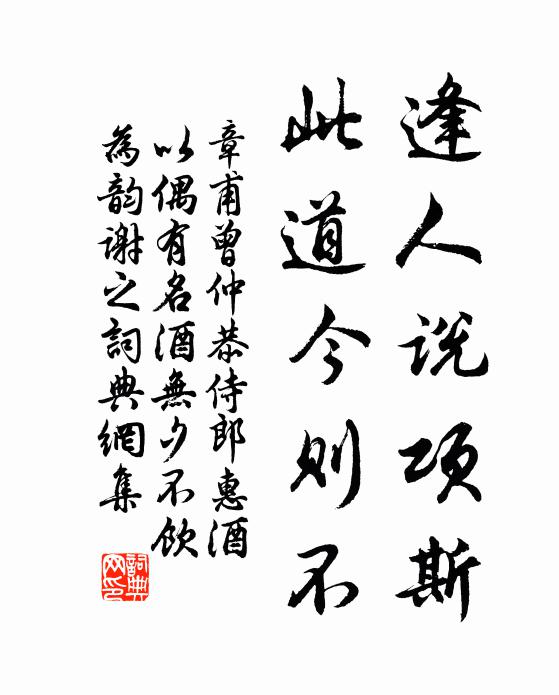 逢人说项斯
此道今则不
章甫曾仲恭侍郎惠酒
以偶有名酒無夕不飲
為韵谢之詞典網集
詞典
网印